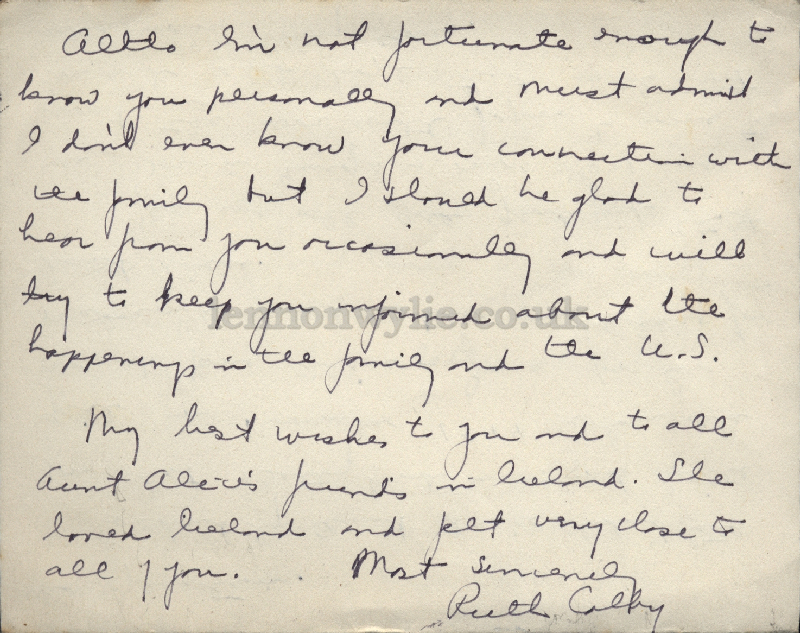 Altho I'm not fortunate enough to
know you personally and must admit
I don't even know your connection with
the family but I should be glad to
hear from you occasionally and will
try to keep you informed about the
happenings in the family and the U.S.
lennonwylie.co.uk
My best wishes to you and to all
Aunt Alice's friends in Ireland. She
loved Ireland and felt very close to
all of you. Most sincerely
Ruth Colby